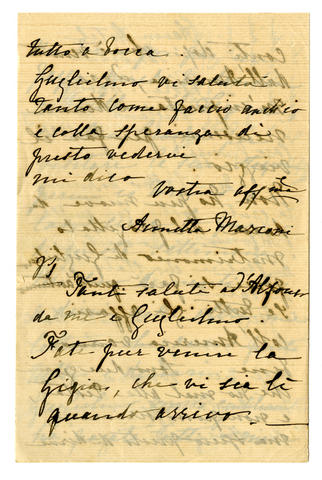 tutto a Vocca.
Guglielmo vi saluta
tanto come faccio anch'io
e colla speranza di
presto vedervi
mi dico
Vostra affma
Annetta Marconi
Tanti saluti ad Alfonso
da me e Guglielmo.
Fate pur venire la
Gigia, che vi sia lì
quando arrivo.